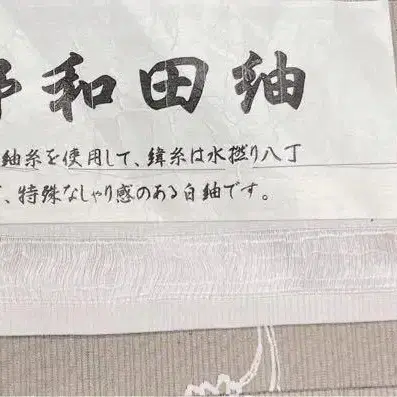 和田紬
紬糸を使用して、緯糸は水撚り八丁
、特殊なしゃり感のある白紬です。